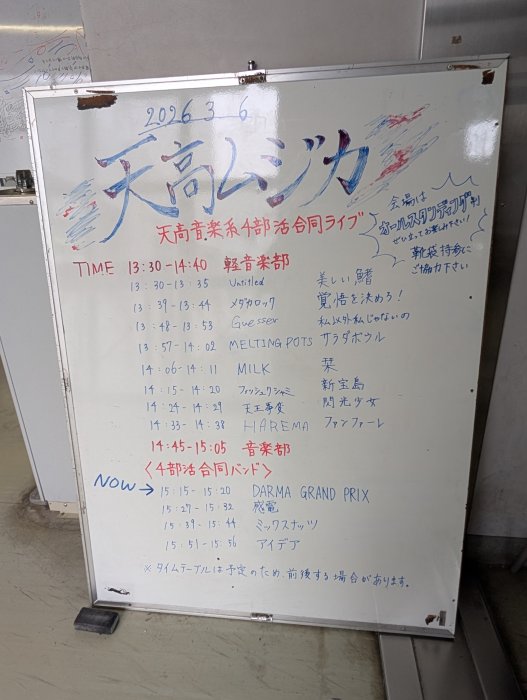 2026 3 6
天高ムジカ
天高音楽系4部活合同ライブ
会場は
オールスタンディング制
ぜひ立ってお楽しみ下さい!
靴袋持参に
ご協力下さい
TIME 13:30-14:40 軽音楽部
13:30-13:35 Untitled 美しい鰭
13:39-13:44 メダカロック 覚悟を決めろ!
13:48-13:53 Guesser 私以外私じゃないの
13:57-14:02 MELTING POTS サラダボウル
14:06-14:11 MILK 栞
14:15-14:20 フィッシュクシャミ 新宝島
14:24-14:29 天王寺変 閃光少女
14:33-14:38 HAREMA ファンファーレ
14:45-15:05 音楽部
〈4部活合同バンド〉
NOW→ 15:15-15:20 DARMA GRAND PRIX
15:27-15:32 感電
15:39-15:44 ミックスナッツ
15:51-15:56 アイデア
※タイムテーブルは予定のため、前後する場合があります。